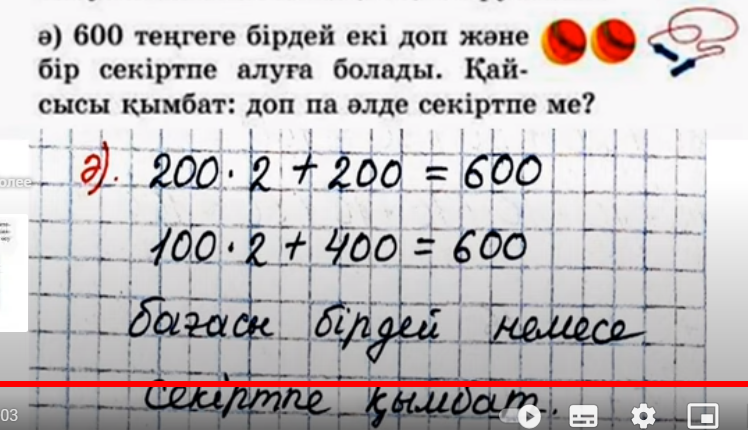 ә) 600 теңгеге бірдей екі доп және
бір секіртпе алуға болады. Қай-
сысы қымбат: доп па әлде секіртпе ме?
ә). 200 · 2 + 200 = 600
100 · 2 + 400 = 600
бағасы бірдей немесе
секіртпе қымбат.
олее
03